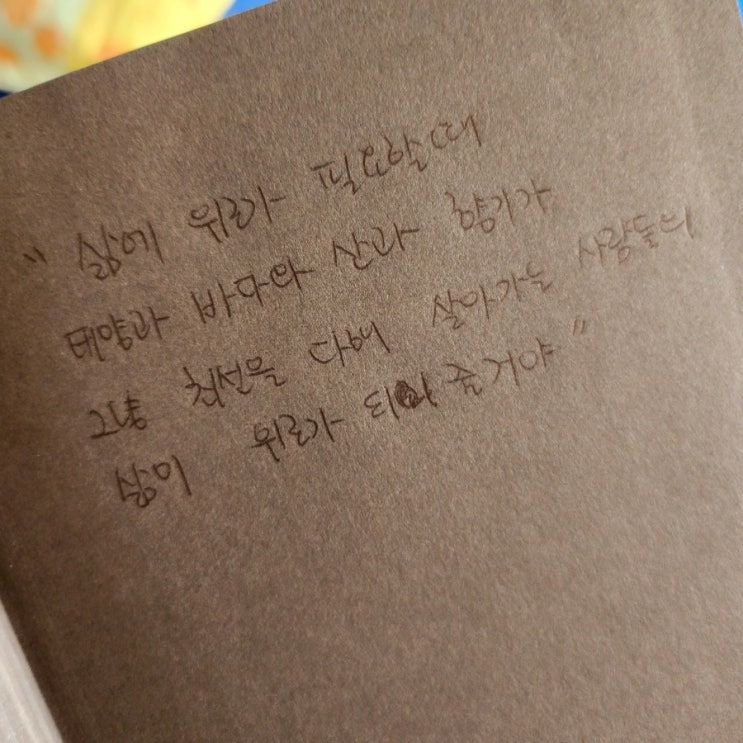 " 삶에 위로가 필요할때
태양과 바다와 산과 향기가
그냥 최선을 다해 살아가는 사람들의
삶이 위로가 되어 줄거야 "